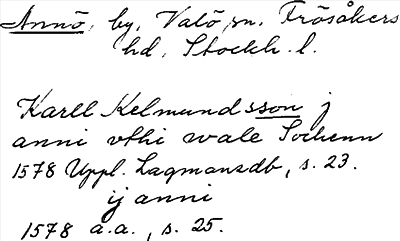 Annö, by, Valö sn, Frösåkers
hd, Stockh. l.
Karll Kelmundsson j
anni vthi wale Sochenn
1578 Uppl. Lagmansdb, s. 23.
ij anni
1578 a.a., s. 25.